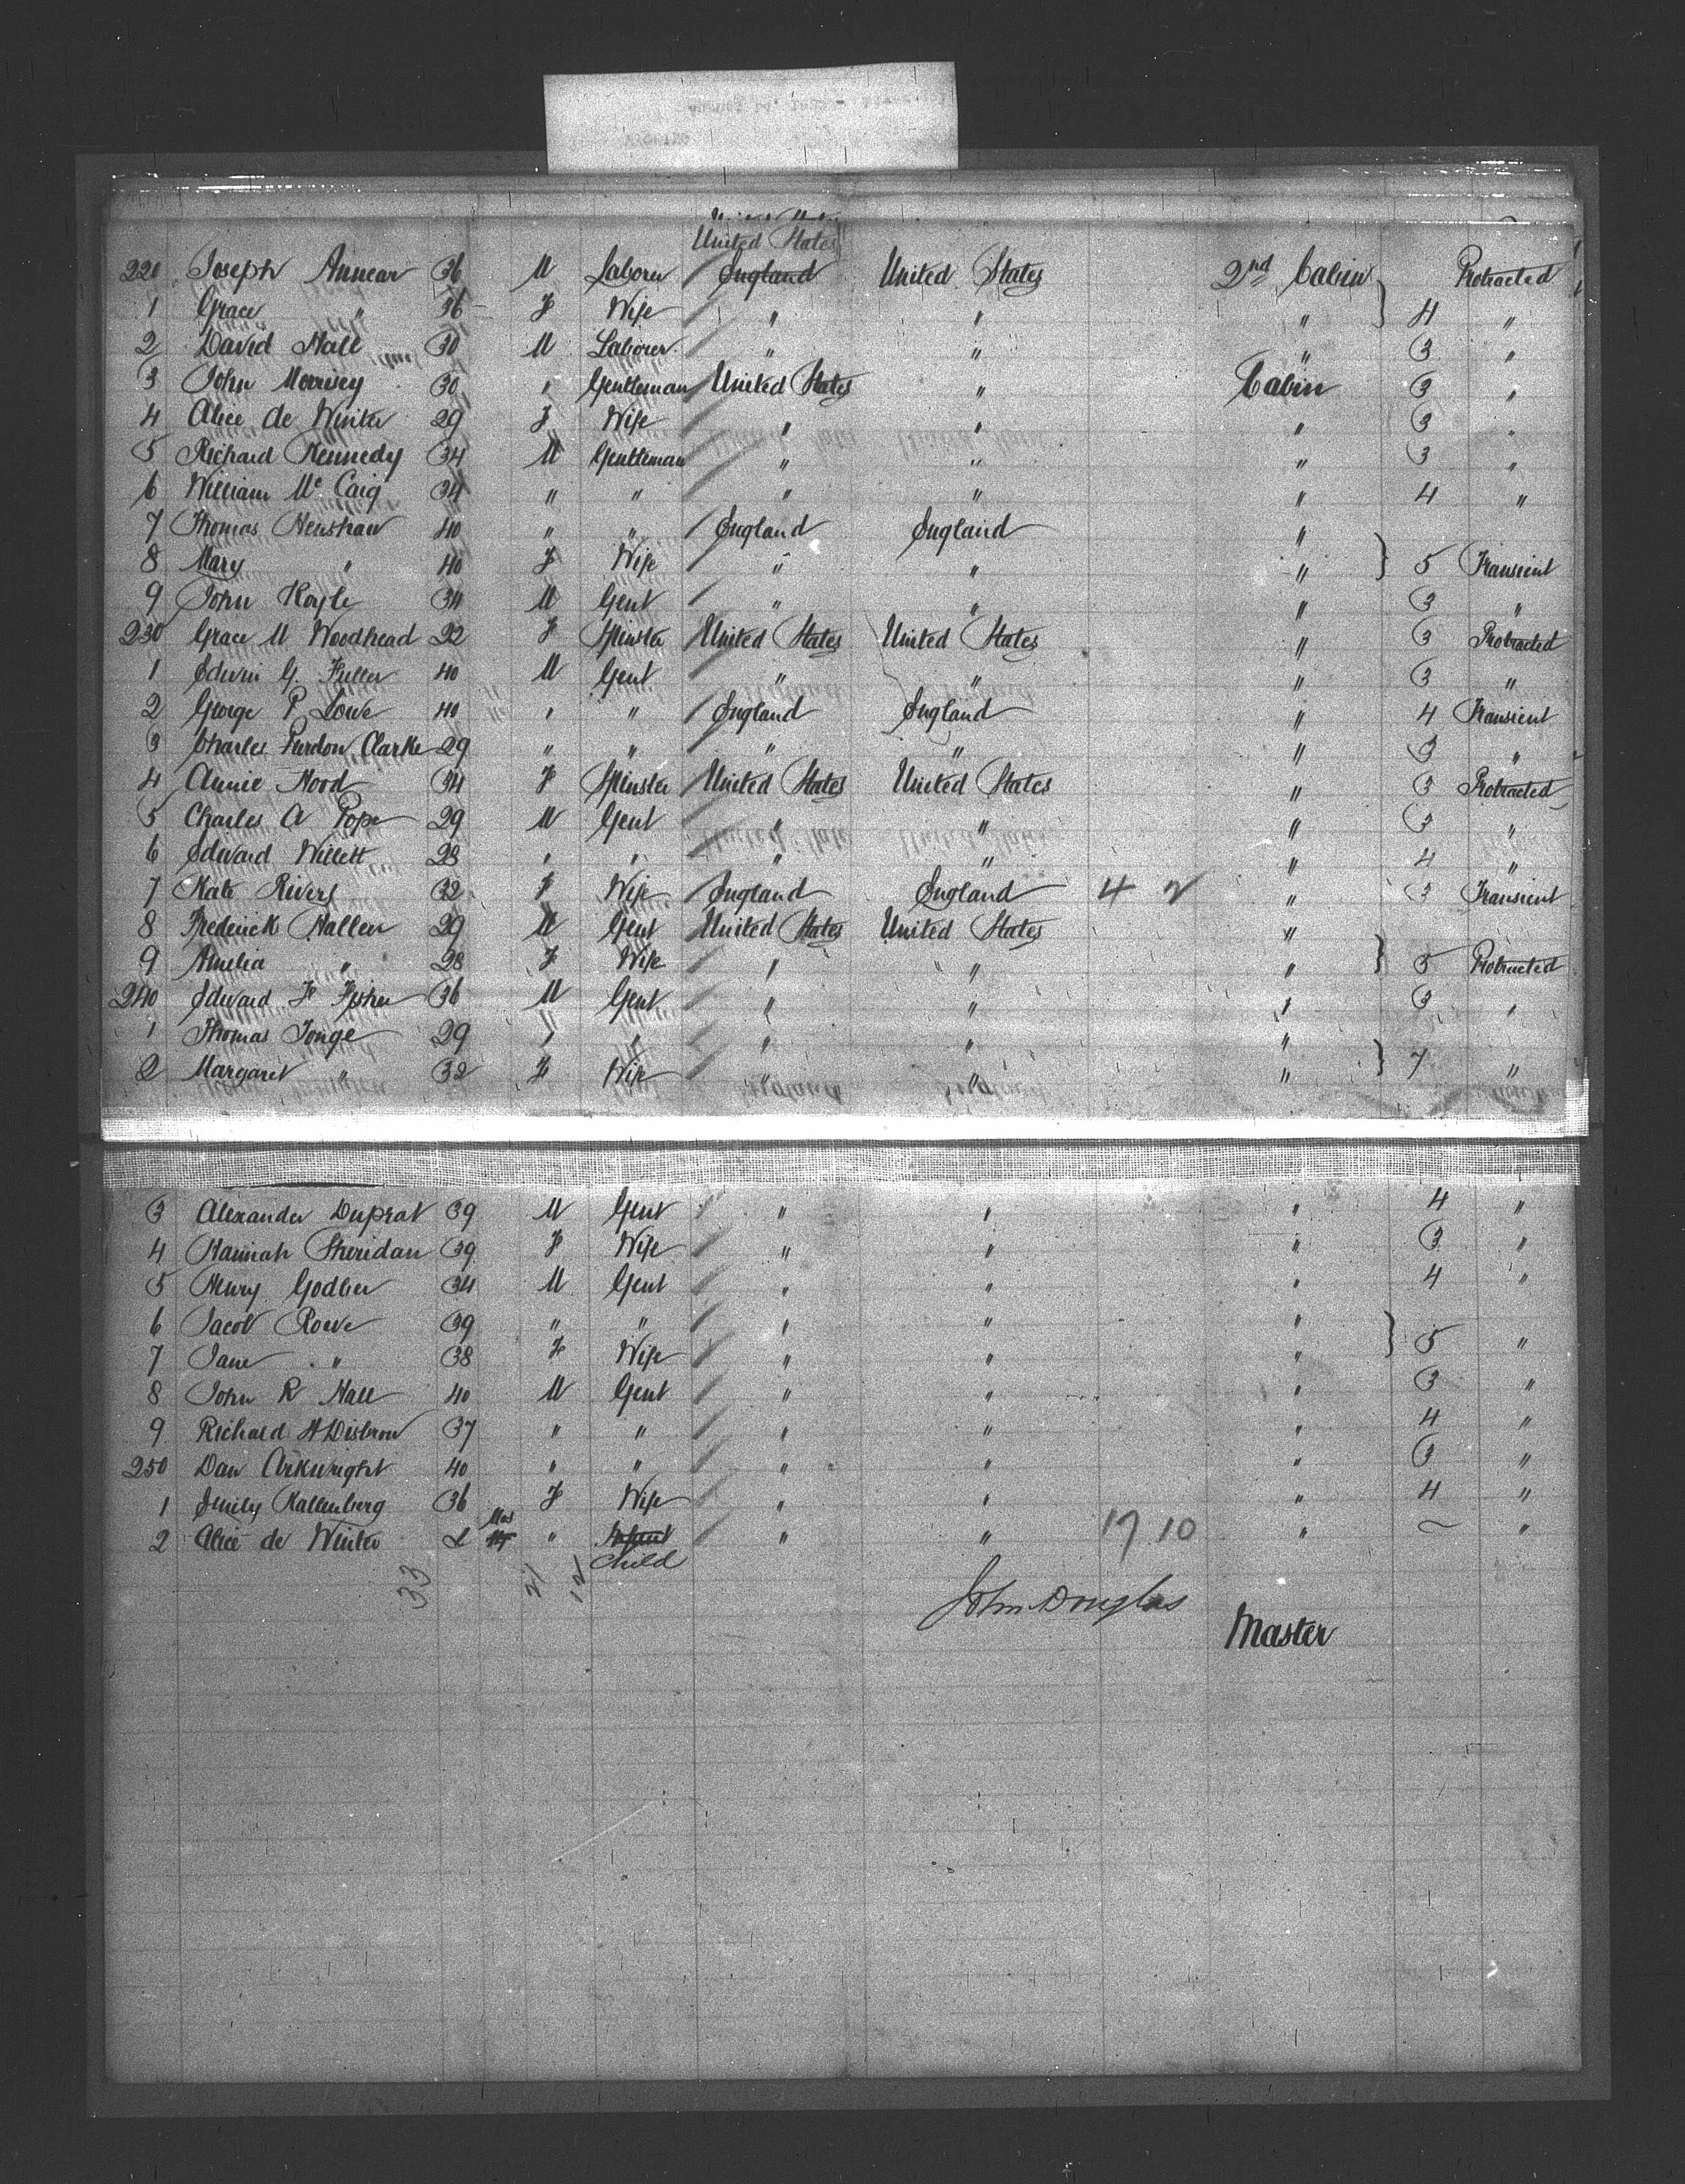 United States
220 Joseph Annear 36 M Laborer England United States 2nd Cabin Protracted
1 Grace " 36 F Wife " " " 4 "
2 David Hall 30 M Laborer " " " 3 "
3 John Morrisey 30 " Gentleman United States " Cabin 3 "
4 Alice de Winter 29 F Wife " " " 3 "
5 Richard Kennedy 34 M Gentleman " " " 3 "
6 William Mc Caig 34 " " " " " 4 "
7 Thomas Henshaw 40 " " England England "
8 Mary " 40 F Wife " " " 5 Transient
9 John Royle 34 M Gent " " " 3 "
230 Grace M Woodhead 22 F Spinster United States United States " 3 Protracted
1 Edwin G. Fuller 40 M Gent " " " 3 "
2 George P Lowe 40 " " England England " 4 Transient
3 Charles Purdon Clarke 29 " " " " " 3 "
4 Annie Hood 34 F Spinster United States United States " 3 Protracted
5 Charles A Pope 29 M Gent " " " 3 "
6 Edward Willett 28 " " " " " 4 "
7 Kate Rivers 32 F Wife England England 4 2 " 3 Transient
8 Frederick Hallen 29 M Gent United States United States "
9 Amelia " 28 F Wife " " " 5 Protracted
240 Edward F Fisher 36 M Gent " " " 3 "
1 Thomas Tonge 29 " " " " "
2 Margaret " 32 F Wife " " " 7 "
3 Alexander Duprat 39 M Gent " " " 4 "
4 Hannah Sheridan 39 F Wife " " " 3 "
5 Henry Godber 34 M Gent " " " 4 "
6 Jacob Rowe 39 " " " " "
7 Jane " 38 F Wife " " " 5 "
8 John R Hall 40 M Gent " " " 3 "
9 Richard H Disbrow 37 " " " " " 4 "
250 Dan Arkwright 40 " " " " " 3 "
1 Emily Kallenberg 36 F Wife " " " 4 "
Mos
2 Alice de Winter " Infant " " 17 10 " ~ "
Child
33 21 12
John Douglas
Master